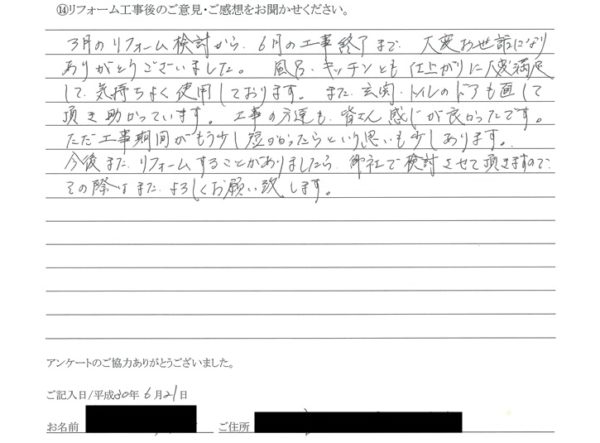 ⑭リフォーム工事後のご意見・ご感想をお聞かせください。
3月のリフォーム検討から、6月の工事終了まで、大変お世話になり
ありがとうございました。風呂、キッチンとも仕上がりに大変満足
して、気持ちよく使用しております。また、玄関・トイレのドアも直して
頂き助かっています。工事の方達も、皆さん感じが良かったです。
ただ工事期間がもう少し短かかったらという思いも少しあります。
今後また、リフォームすることがありましたら、御社で検討させて頂きますので、
その際はまた、よろしくお願い致します。
アンケートのご協力ありがとうございました。
ご記入日/平成30年 6月21日
お名前 ご住所